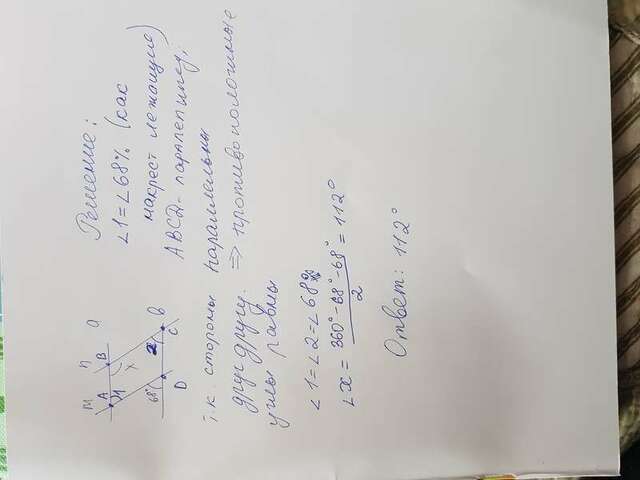 m n a
A B
1
x
68° 2
D C в
Решение:
∠1=∠68% (как
накрест лежащие)
ABCD - паралепипед,
т.к. стороны параллельны
друг другу. => противоположные
углы равны
∠1=∠2=∠68°
∠X= 360°-68°-68° / 2 = 112°
Ответ: 112°